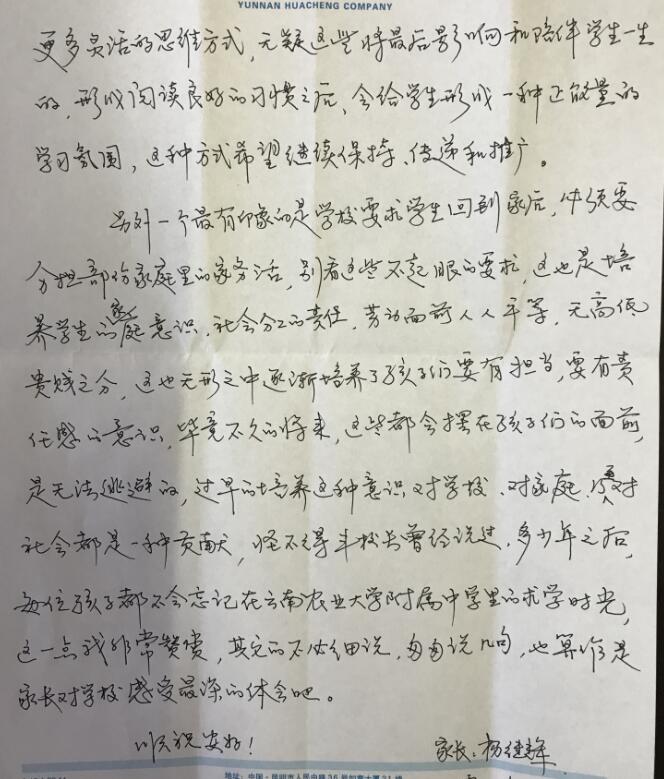 YUNNAN HUACHENG COMPANY
更多灵活的思维方式,无疑这些将最后影响和陪伴学生一生
的,形成阅读良好的习惯之后,会给学生形成一种正能量的
学习氛围,这种方式希望继续保持、传递和推广。
另外一个最有印象的是学校要求学生回到家后,必须要
分担部份家庭里的家务活,别看这些不起眼的要求,这也是培
养学生的家庭意识,社会分工的责任,劳动面前人人平等,无高低
贵贱之分,这也无形之中逐渐培养了孩子们要有担当,要有责
任感的意识,毕竟不久的将来,这些都会摆在孩子们的面前,
是无法逃避的,过早的培养这种意识对学校、对家庭、对
社会都是一种贡献,怪不得 校长曾经说过,多少年之后,
每位孩子都不会忘记在云南农业大学附属中学里的求学时光,
这一点我非常赞赏,其它的不必细说,匆匆说几句,也算作是
家长对学校感受最深的体会吧。
顺祝安好!
家长:杨继
地址:中国·昆明市人民中路36号如意大厦31楼